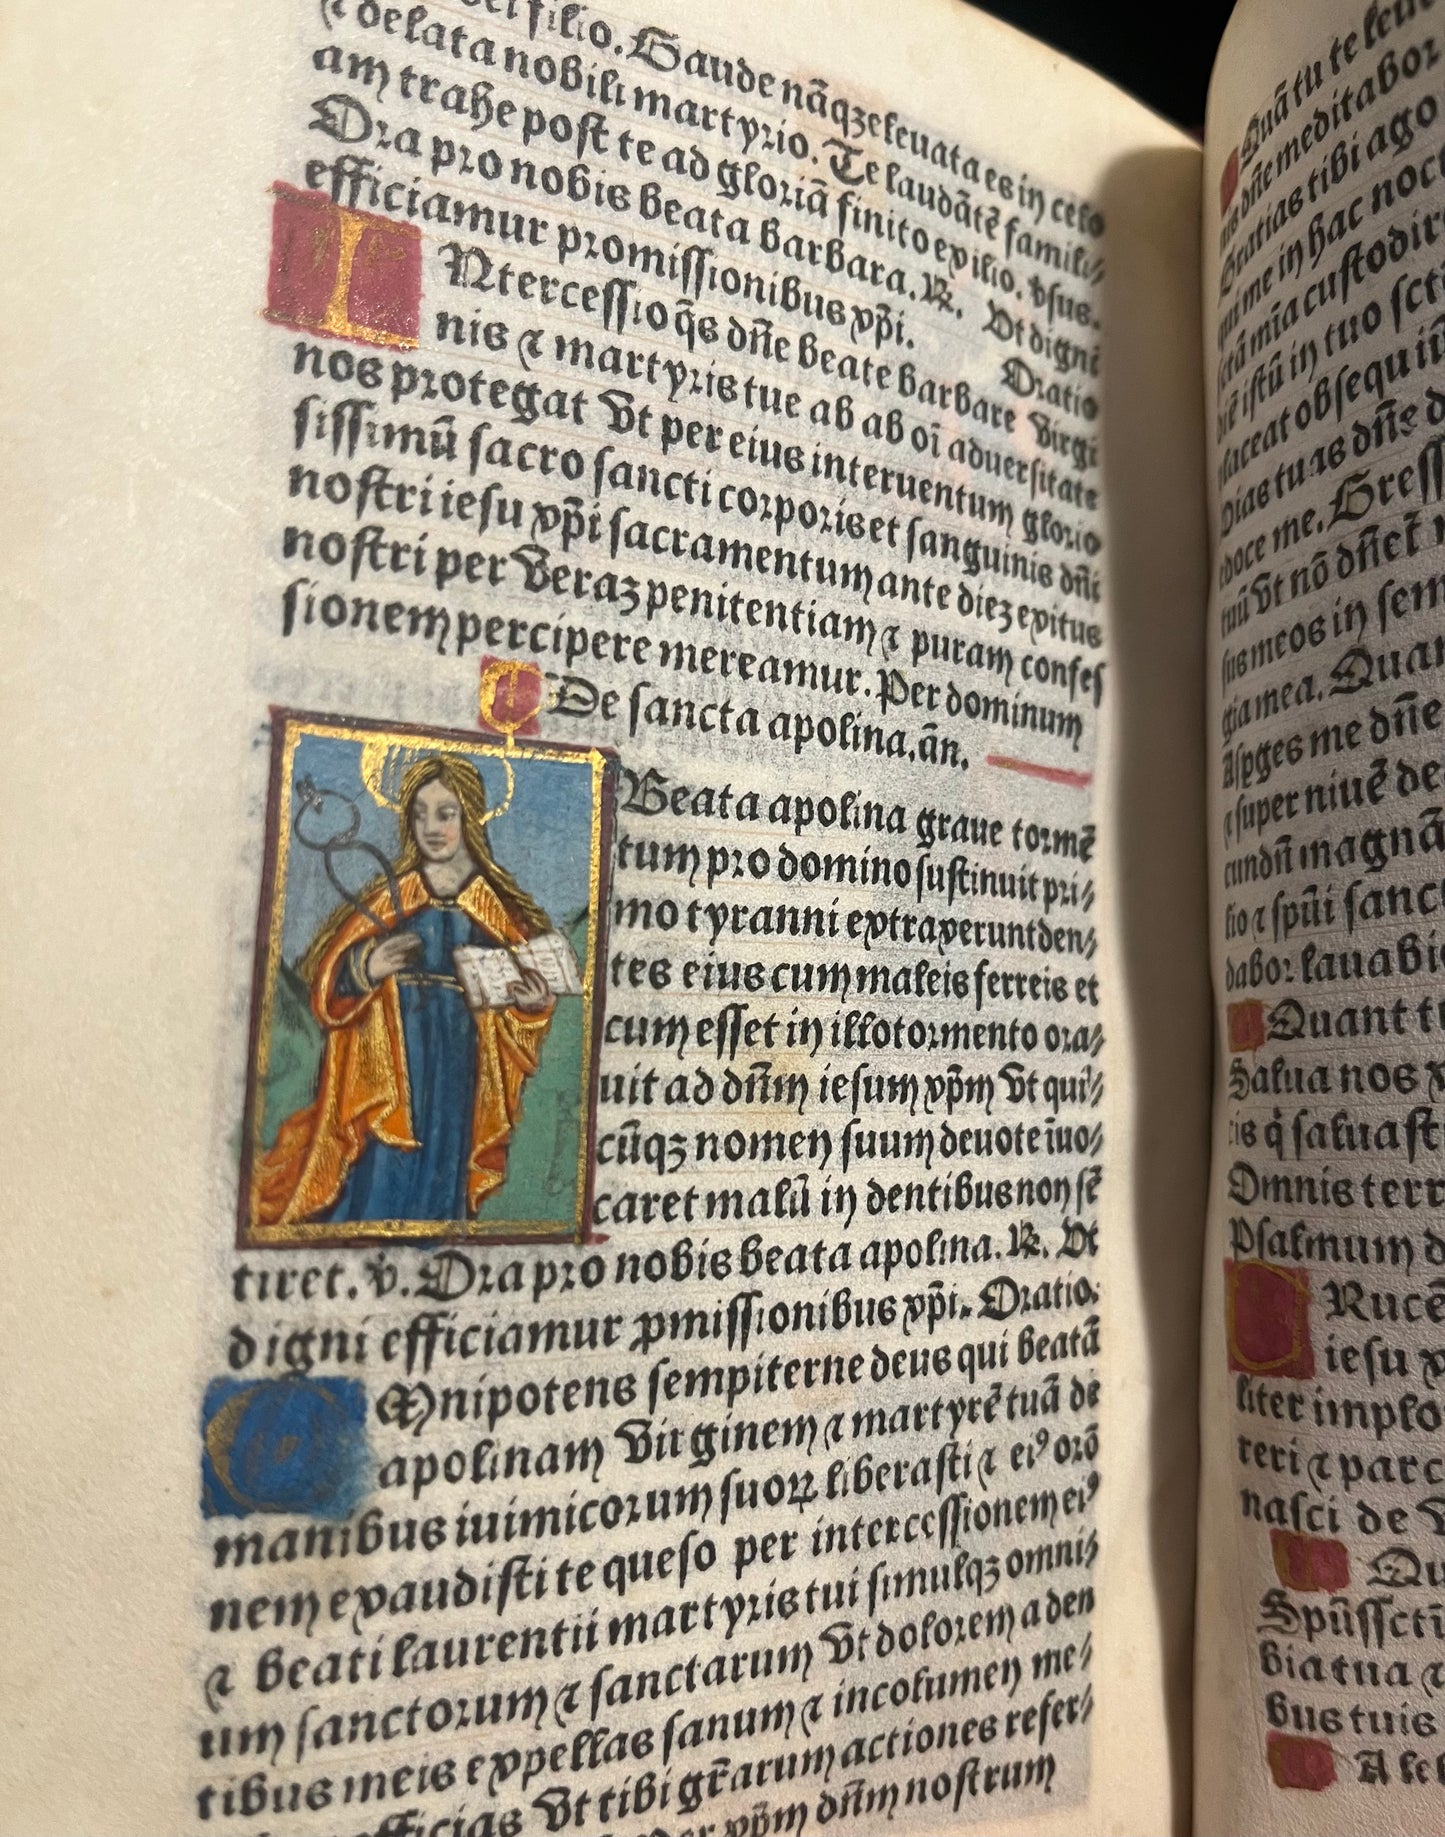 filio. Gaude nãqȝ eleuata es in celo
⁊ delata nobili martyrio. Te laudãtẽ famili⸗
am trahe post te ad gloriã finito exilio. v̄sus.
Ora pro nobis beata barbara. ℟. Vt digni
efficiamur promissionibus xp̄i. Oratio
INtercessio q̄s dñe beate barbare virgi
nis ⁊ martyris tue ab ab oĩ aduersitate
nos protegat vt per eius interuentum glorio
sissimũ sacro sancti corporis et sanguinis dñi
nostri iesu xp̄i sacramentum ante dieȝ exitus
nostri per veraȝ penitentiam ⁊ puram confes
sionem percipere mereamur. Per dominum
De sancta apolina. añ.
Beata apolina graue tormẽ
tum pro domino sustinuit pri⸗
mo tyranni extraxerunt den⸗
tes eius cum maleis ferreis et
cum esset in illo tormento ora⸗
uit ad dñm iesum xp̄m vt qui⸗
cũqȝ nomen suum deuote ĩuo⸗
caret malũ in dentibus non sẽ
tiret. ℣. Ora pro nobis beata apolina. ℟. Vt
digni efficiamur ꝓmissionibus xp̄i. Oratio.
OMnipotens sempiterne deus qui beatã
apolinam virginem ⁊ martyrẽ tuã de
manibus iuimicorum suoꝝ liberasti ⁊ eiꝰ orõ
nem exaudisti te queso per intercessionem eiꝰ
⁊ beati laurentii martyris tui simulqȝ omni⸗
um sanctorum ⁊ sanctarum vt dolorem a den
tibus meis expellas sanum ⁊ incolumen me⸗
efficias vt tibi gr̃arum actiones refer⸗
xp̄m dñm nostrum
Quã tu te
dñe meditabor
Gratias tibi ago
qui me in hac noct
custodir
istũ in tuo
placeat obsequiũ
Dias tuas dñe
edoce me. Gress
vt nõ dñet̃
sus meos in sem
gia mea. Quan
Aspges me dñe
⁊ super niuẽ de
cundũ magnã
lio ⁊ spũi sanc
dabor lauabi
Quant t
Salua nos
tis q̃ saluast
Omnis terr
Psalmum
RUcẽ
iesu
liter implo
reri ⁊ parc
nasci de v
Qu
Spũs scti
bia tua ⁊
bus tuis
Alel